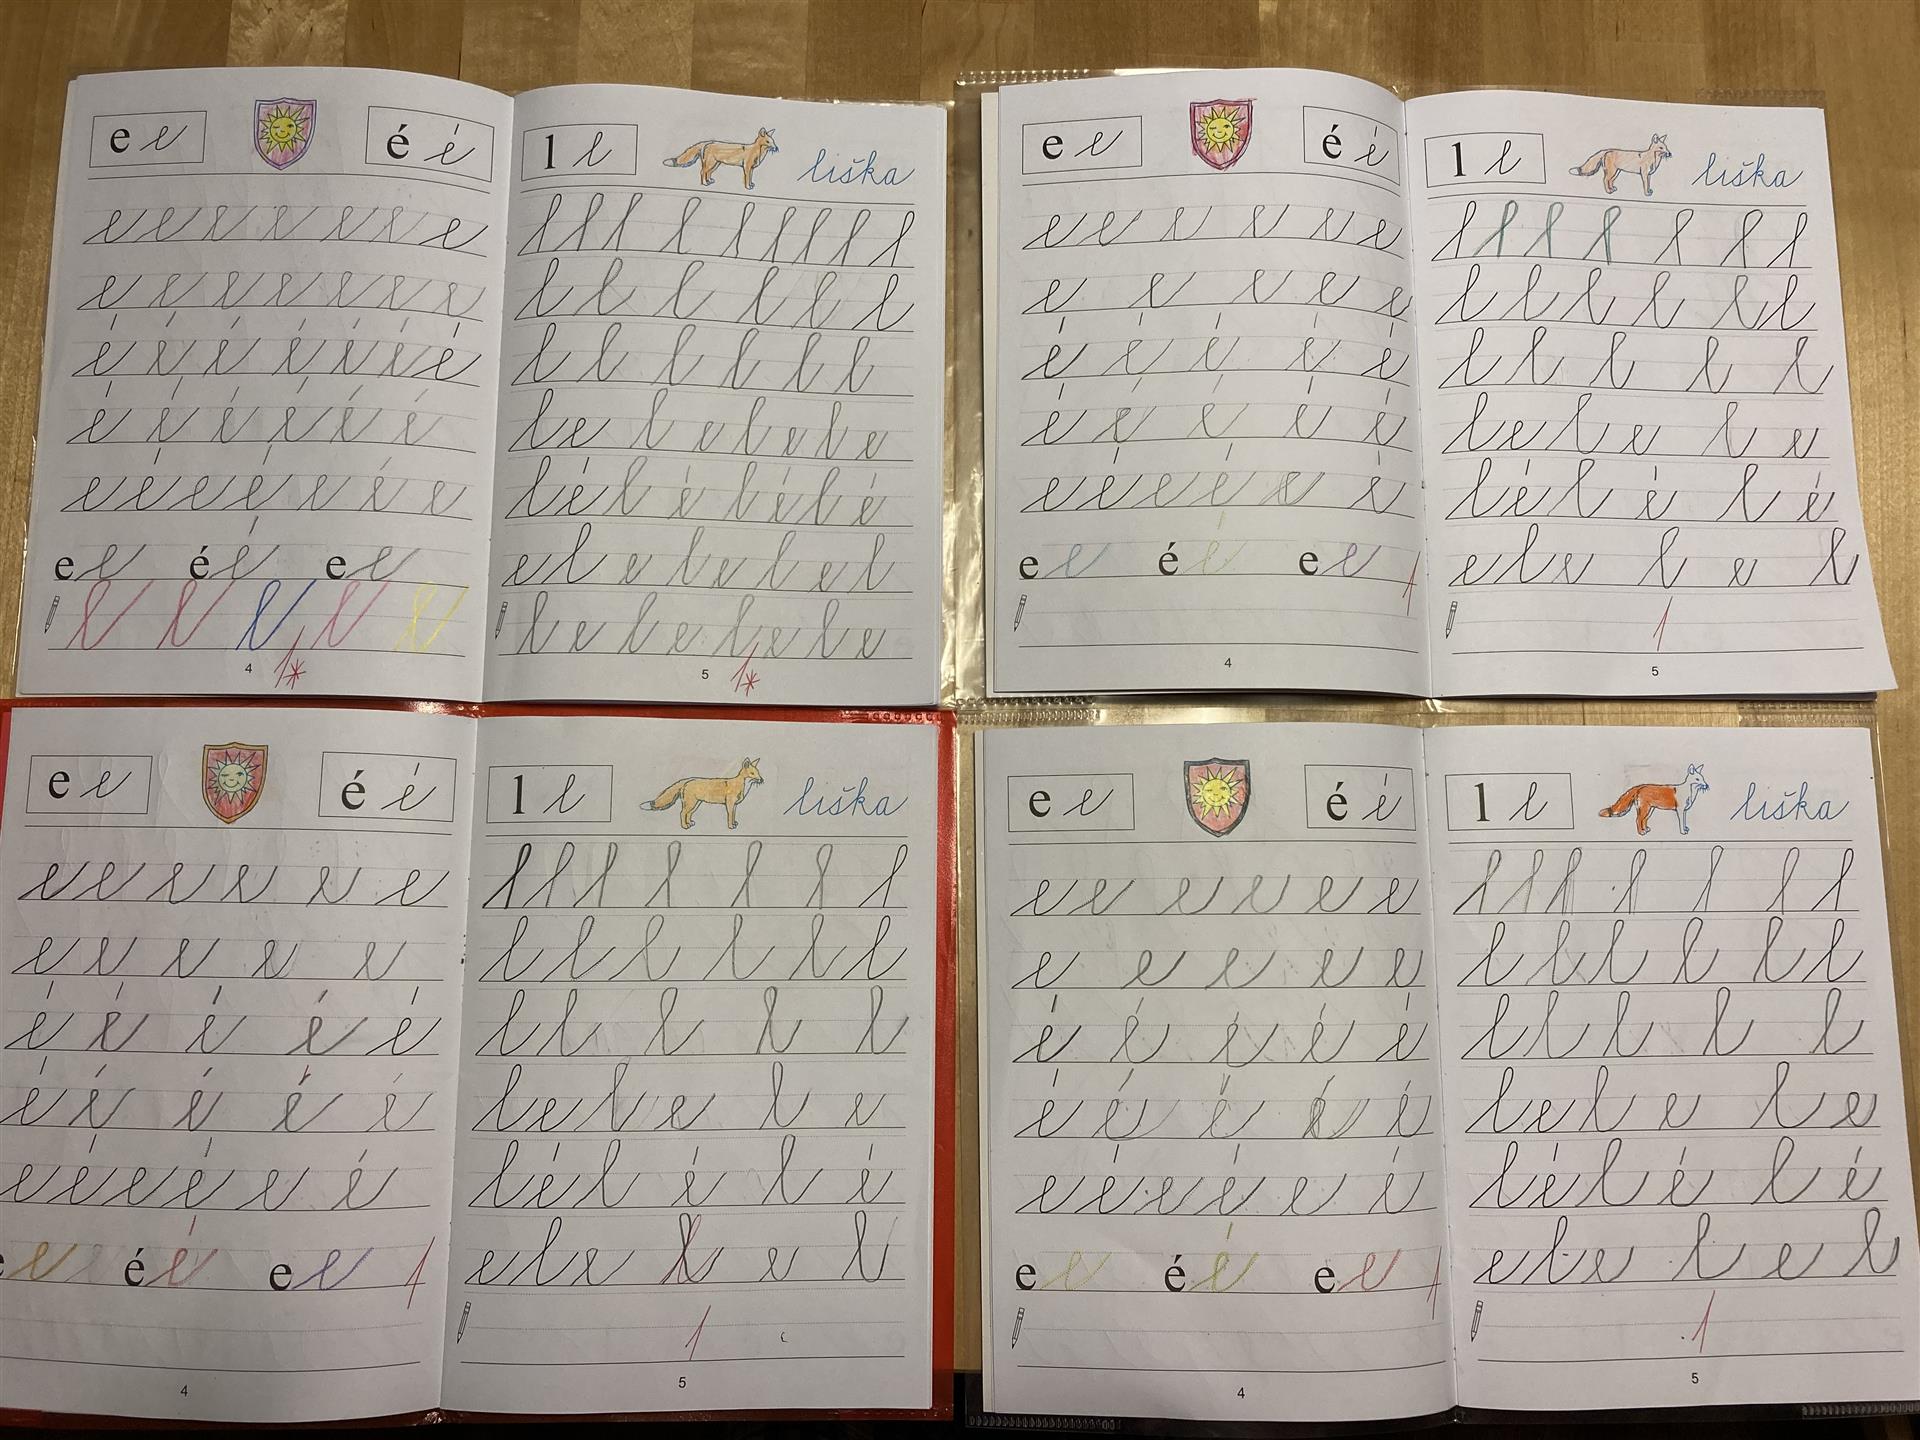 e e é é
e e e e e e e
e e e e e e e
é é é é é é é
é é é é é é
e é e é e é e
e e é é e e
l l l l l
4 1*
l l liška
l l l l l l l l l
l l l l l l
l l l l l l
l e l e l e l e
l é l é l é l é
e l e l e l e l
l e l e l e l e
5 1*
e e é é
e e e e e e
e e e e e
é é é é é
é é é é é
e é e é e é
e e é é e e 1
4
l l liška
l l l l l l l
l l l l l l
l l l l l
l e l e l e
l é l é l é
e l e l e l
1
5
e e é é
e e e e e e
e e e e e
é é é é é
é é é é é
e é e é e é
e e é é e e 1
4
l l liška
l l l l l l l
l l l l l l
l l l l l
l e l e l e
l é l é l é
e l e l e l
1
5
e e é é
e e e e e e
e e e e e
é é é é é
é é é é é
e é e é e é
e e é é e e 1
4
l l liška
l l l l l l l
l l l l l l
l l l l l
l e l e l e
l é l é l é
e l e l e l
1
5